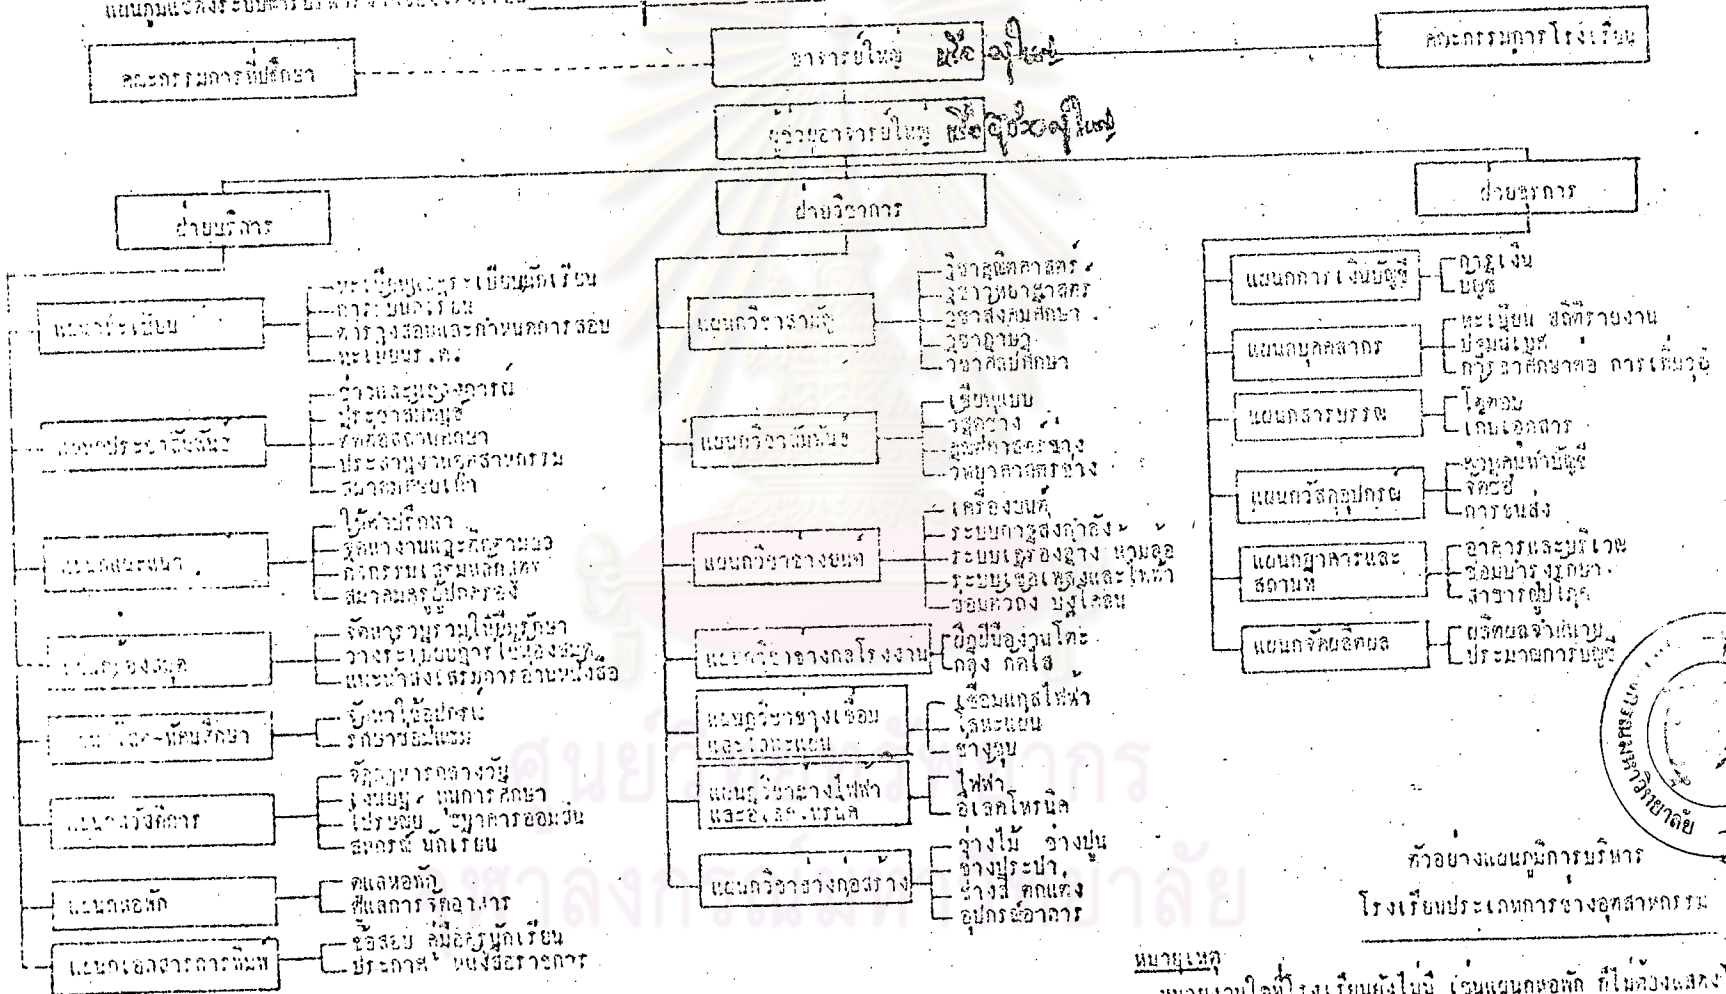 แผนภูมิแสดงระบบการบริหาร
คณะกรรมการที่ปรึกษา
อาจารย์ใหญ่ หรือ ครูใหญ่
คณะกรรมการโรงเรียน
ผู้ช่วยอาจารย์ใหญ่ หรือ ผู้ช่วยครูใหญ่
ฝ่ายบริการ
ฝ่ายวิชาการ
ฝ่ายธุรการ
แผนกทะเบียน
ทะเบียนและระเบียนนักเรียน
การรับนักเรียน
ตารางสอนและกำหนดการสอบ
ทะเบียน ร.ด.
แผนกประชาสัมพันธ์
ข่าวและแถลงการณ์
ประชาสัมพันธ์
ประสานงานอุตสาหกรรม
แผนกแนะแนว
ให้คำปรึกษา
จัดหางานและติดตามผล
กิจกรรมเสริมหลักสูตร
สมาคมครูผู้ปกครอง
แผนกห้องสมุด
จัดหารวบรวมให้ยืมรักษา
วางระเบียบการใช้ห้องสมุด
แนะนำส่งเสริมการอ่านหนังสือ
แผนกโสต-ทัศนศึกษา
จัดหาใช้อุปกรณ์
รักษาซ่อมแซม
แผนกสวัสดิการ
จัดอาหารกลางวัน
ทุนการศึกษา
ไปรษณีย์ ธนาคารออมสิน
สหกรณ์ นักเรียน
แผนกหอพัก
ดูแลหอพัก
ดูแลการจัดอาหาร
แผนกเอกสารการพิมพ์
ข้อสอบ คู่มือครูนักเรียน
ประกาศ หนังสือราชการ
แผนกวิชาสามัญ
วิชาคณิตศาสตร์
วิชาวิทยาศาสตร์
วิชาสังคมศึกษา
วิชาภาษา
วิชาศิลปศึกษา
แผนกวิชาสัมพันธ์
เขียนแบบ
วัสดุช่าง
คณิตศาสตร์ช่าง
วิทยาศาสตร์ช่าง
แผนกวิชาช่างยนต์
เครื่องยนต์
ระบบการส่งกำลัง
ระบบเครื่องล่าง ห้ามล้อ
ระบบเชื้อเพลิงและไฟฟ้า
ซ่อมตัวถัง บังโคลน
แผนกวิชาช่างกลโรงงาน
ฝึกฝีมืองานโลหะ
กลึง กัดไส
แผนกวิชาช่างเชื่อม
และโลหะแผ่น
เชื่อมแกสไฟฟ้า
โลหะแผ่น
ช่างชุบ
แผนกวิชาช่างไฟฟ้า
และอิเลคโทรนิค
ไฟฟ้า
อิเลคโทรนิค
แผนกวิชาช่างก่อสร้าง
ช่างไม้ ช่างปูน
ช่างประปา
ช่างสี ตกแต่ง
อุปกรณ์อาคาร
แผนกการเงินบัญชี
การเงิน
บัญชี
แผนกบุคคลากร
ทะเบียน สถิติรายงาน
ปฐมนิเทศ
การลาศึกษาต่อ การเพิ่มวุฒิ
แผนกสารบรรณ
โต้ตอบ
เก็บเอกสาร
แผนกวัสดุอุปกรณ์
ควบคุมทำบัญชี
จัดซื้อ
การขนส่ง
แผนกอาคารและ
สถานที่
อาคารและบริเวณ
ซ่อมบำรุงรักษา
สาธารณูปโภค
แผนกจัดผลิตผล
ผลิตผลจำหน่าย
ประมาณการบัญชี
ตัวอย่างแผนภูมิการบริหาร
โรงเรียนประเภทการช่างอุตสาหกรรม
หมายเหตุ
หน่วยงานใดที่โรงเรียนยังไม่มี เช่นแผนกหอพัก ก็ไม่ต้องแสดง
ศูนย์วิทยทรัพยากร
จุฬาลงกรณ์มหาวิทยาลัย